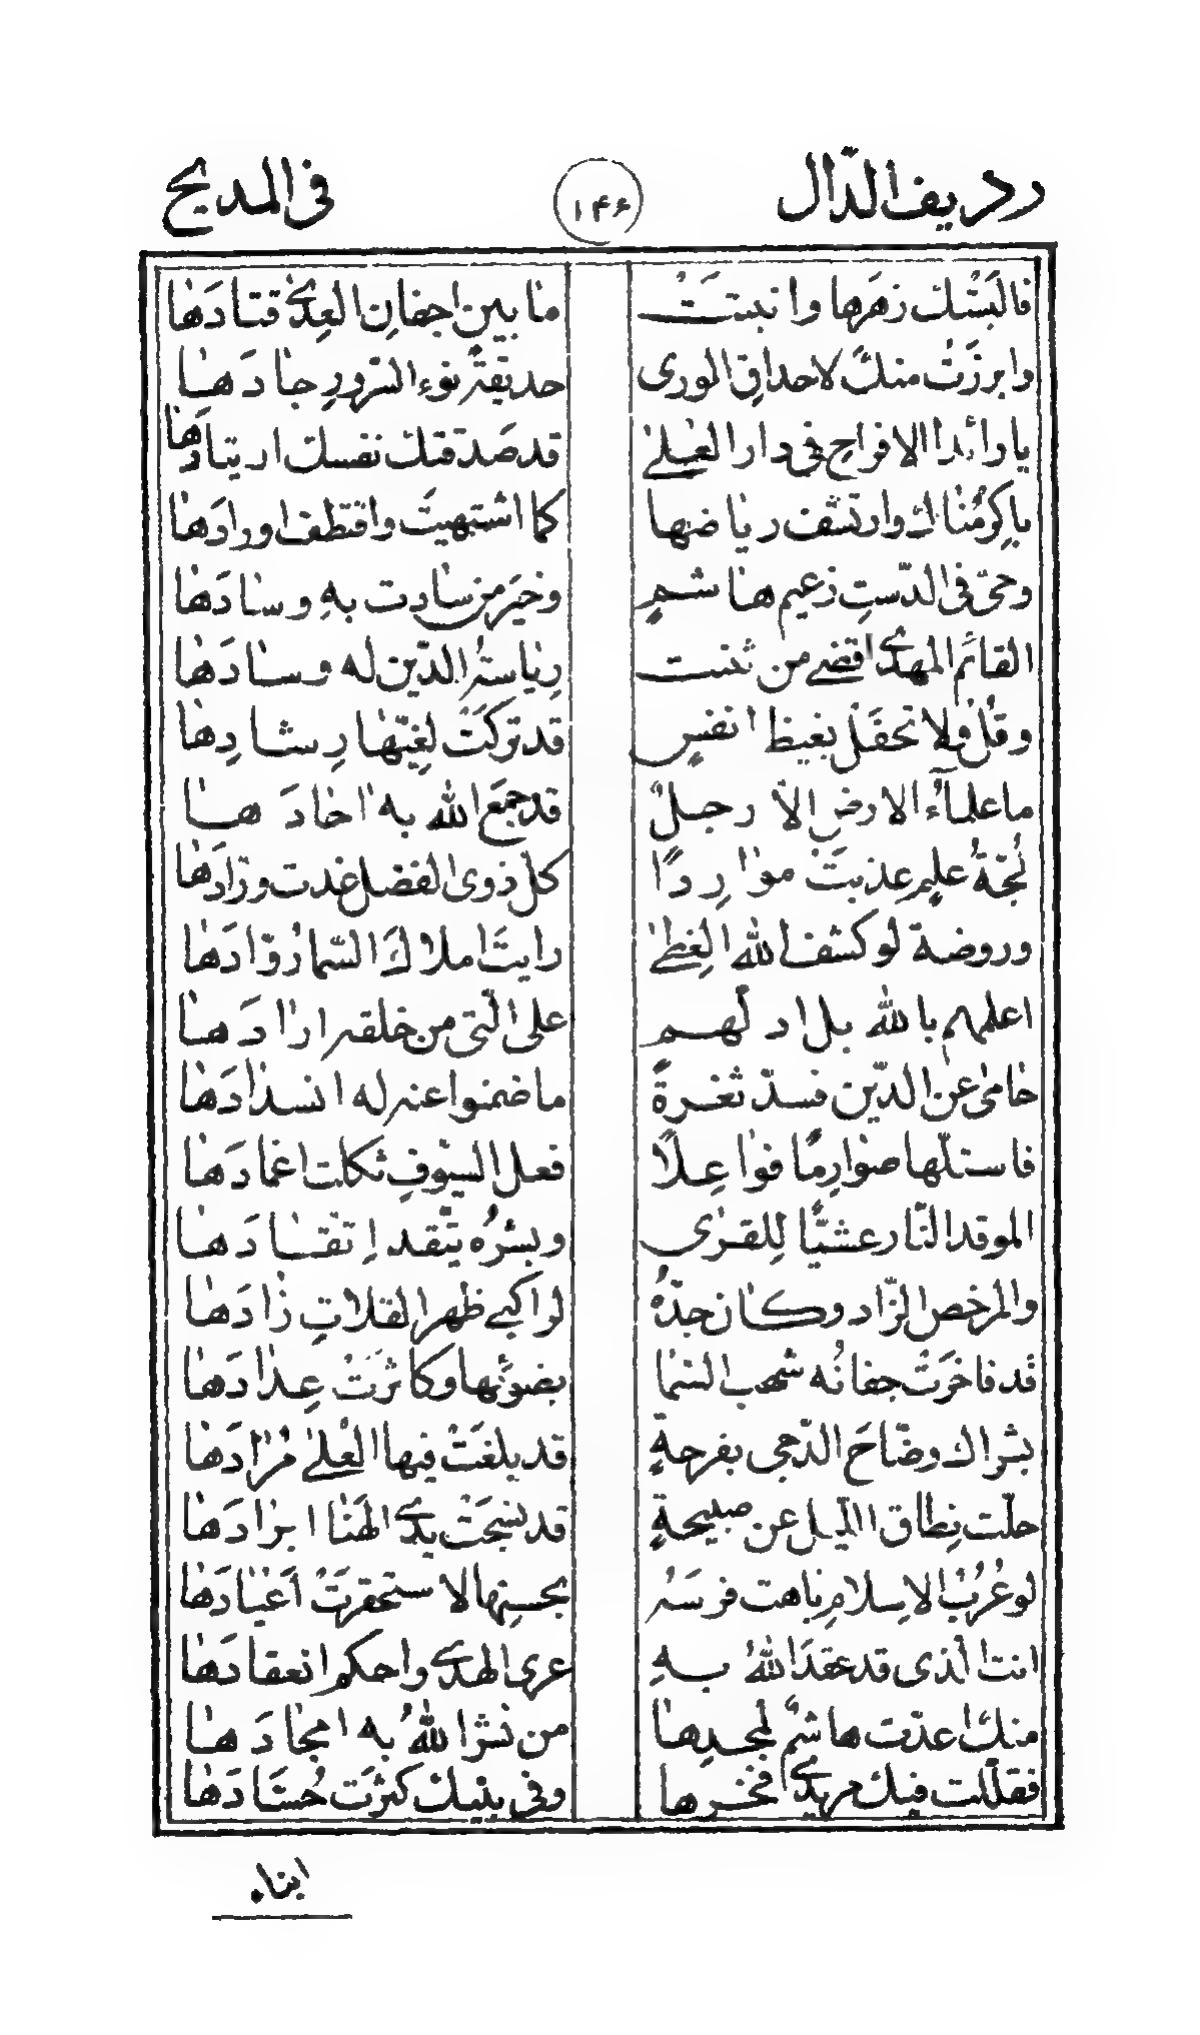 رديف الدّال ١۴۶ فى المديح
فالبَسَتْك زهَرها وانبتَتْ ما بين اجفانِ العِدىٰ قتادَها
وابرزَتْ منكَ لاحداقِ الورى حديقةً نوء السّرورِ جادَها
يا رائدا الافراح فى دار العُلىٰ قد صَدقتك نفسك ارتيادَها
باكِرْ مُناك وارتشف رياضها كما اشتهيتَ واقتطف اورادَها
وحىّ فى الدّستِ زعيم هاشم وخيرَ من سادت بهِ وسادَها
القائم المهدىّ اقضى من ثنت رياسةُ الدّين له وسادَها
وقُلْ ولا تحفَلْ بغيظ انفسٍ قد تركَتْ لغيّها رِشادِها
ما علماءُ الارض الّا رجلٌ قد جمَع الله به احادَها
لُجّةُ علمٍ عذبتَ مواردًا كلّ ذوى الفضل غدت ورّادَها
وروضة لو كشف الله الغِطىٰ رايتَ املاكَ السّما روّادَها
اعلمهم بالله بل ادلّهم على الّتى من خلقه ارادَها
حامىٰ عن الدّين فسدّ ثغرةً ما ضمنوا عنه له انسدادَها
فاستلّها صوارمًا فواعِلًا فعل السّيوفِ ثكلت اغمادَها
الموقد النّار عشيًّا لِلقرٰى وبشرُه يتّقد اِتقادَها
والمرخص الزّاد وكان جدّهُ لراكبى ظهر الفلاتِ زادَها
قد فاخرَتْ جفانُه شهب السّما بضوئها وكاثرَتْ عِدادَها
بشراك وضّاحَ الدّجى بفرحةٍ قد بلغَتْ فيها العُلىٰ مُرادَها
حلّت نِطاق اللّيل عن صبيحةٍ قد نسجَتْ يدىّ الهَنا ابرادَها
لو عُرْبُ الاسلامِ باهت فرسَهُ بحسنِها لاستحقرَتْ اَعيادَها
انت الّذى قد عقدَ اللهُ بهِ عرى الهدىٰ واحكم انعقادَها
منك اعدّت هاشمٌ لمجدِها من نشر اللهُ به امجادَها
فقلّلت فيك مهدىّ فخرها وفى بنيك كثرَت حُسّادَها
ابناء